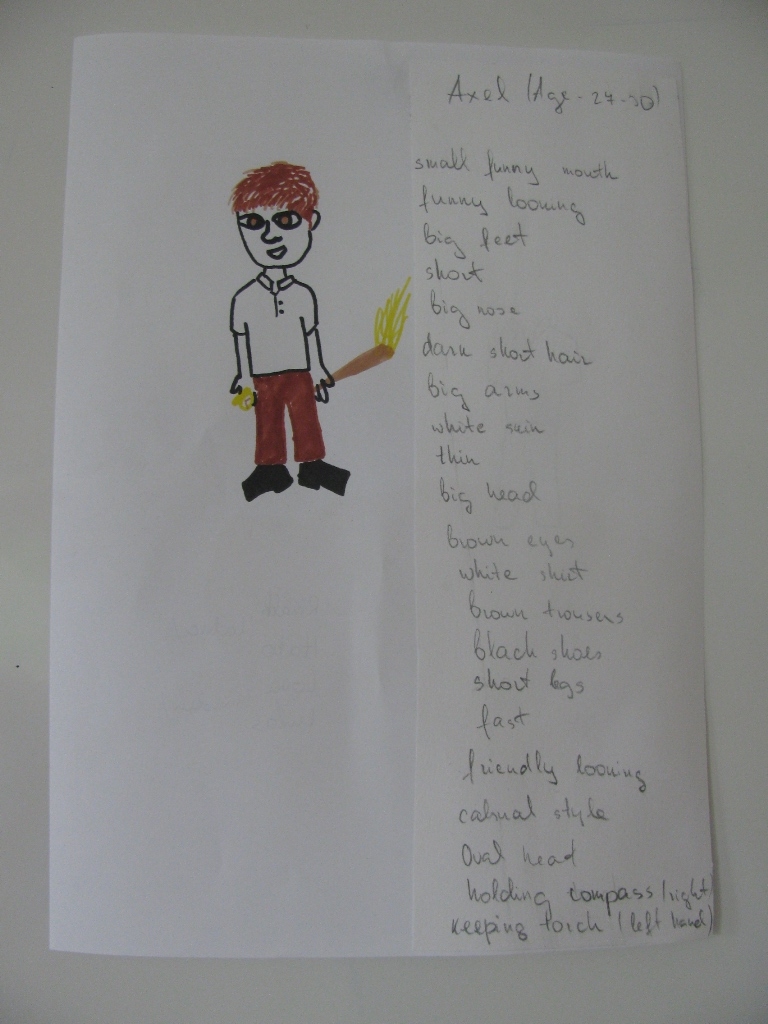 Axel (Age - 27-30)
small funny mouth
funny looking
big feet
short
big nose
dark short hair
big arms
white skin
thin
big head
brown eyes
white shirt
brown trousers
black shoes
short legs
fast
friendly looking
casual style
Oval head
holding compass (right)
keeping torch (left hand)